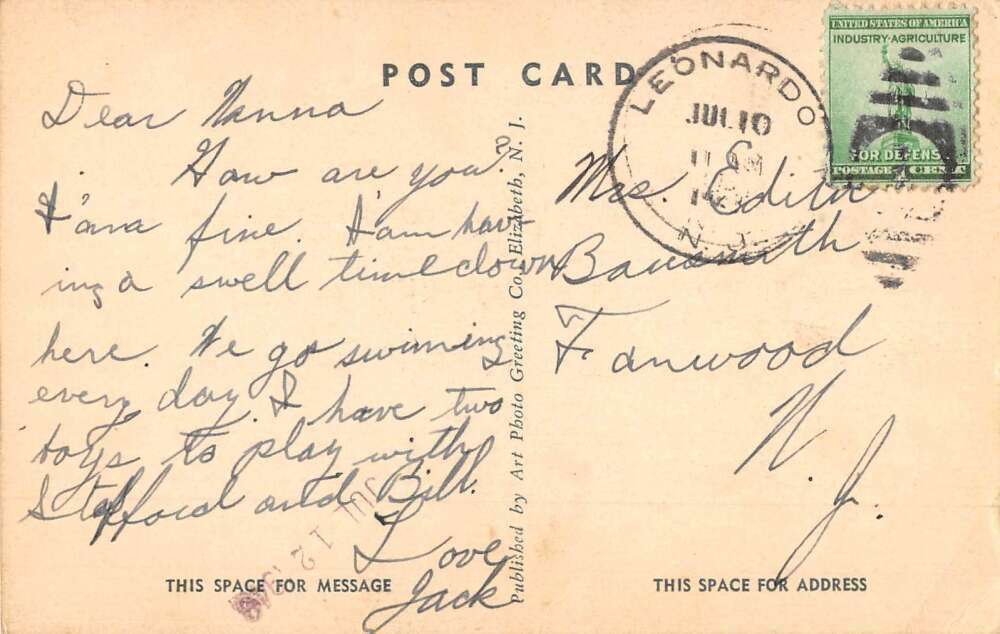 POST CARD
Dear Nanna
How are you?
I'am fine. I'am hav-
ing a swell time down
here. We go swimming
every day. I have two
boys to play with
Stafford and Bill.
Love
Jack
THIS SPACE FOR MESSAGE
Published by Art Photo Greeting Co., Elizabeth, N. J.
LEONARDO
JUL 10
N. J.
UNITED STATES OF AMERICA
INDUSTRY·AGRICULTURE
FOR DEFENSE
POSTAGE 1 CENT
Mrs. Edith
Fanwood
N. J.
THIS SPACE FOR ADDRESS
JUL 12